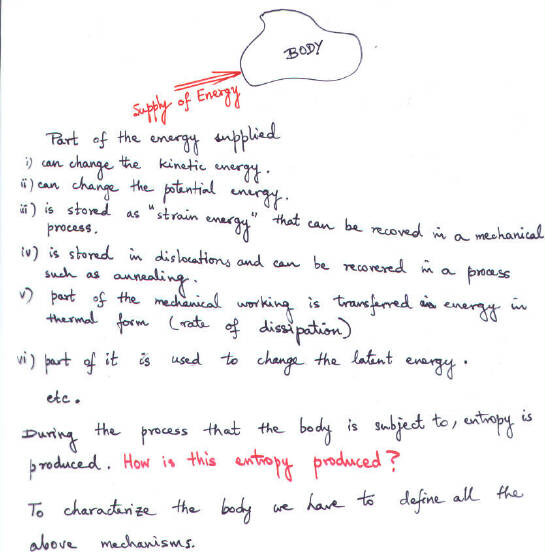 BODY
Supply of Energy
Part of the energy supplied
i) can change the kinetic energy.
ii) can change the potential energy.
iii) is stored as "strain energy" that can be recoved in a mechanical
process.
iv) is stored in dislocations and can be recovered in a process
such as annealing.
v) part of the mechanical working is transferred energy in
thermal form (rate of dissipation)
vi) part of it is used to change the latent energy.
etc.
During the process that the body is subject to, entropy is
produced. How is this entropy produced?
To characterize the body we have to define all the
above mechanisms.